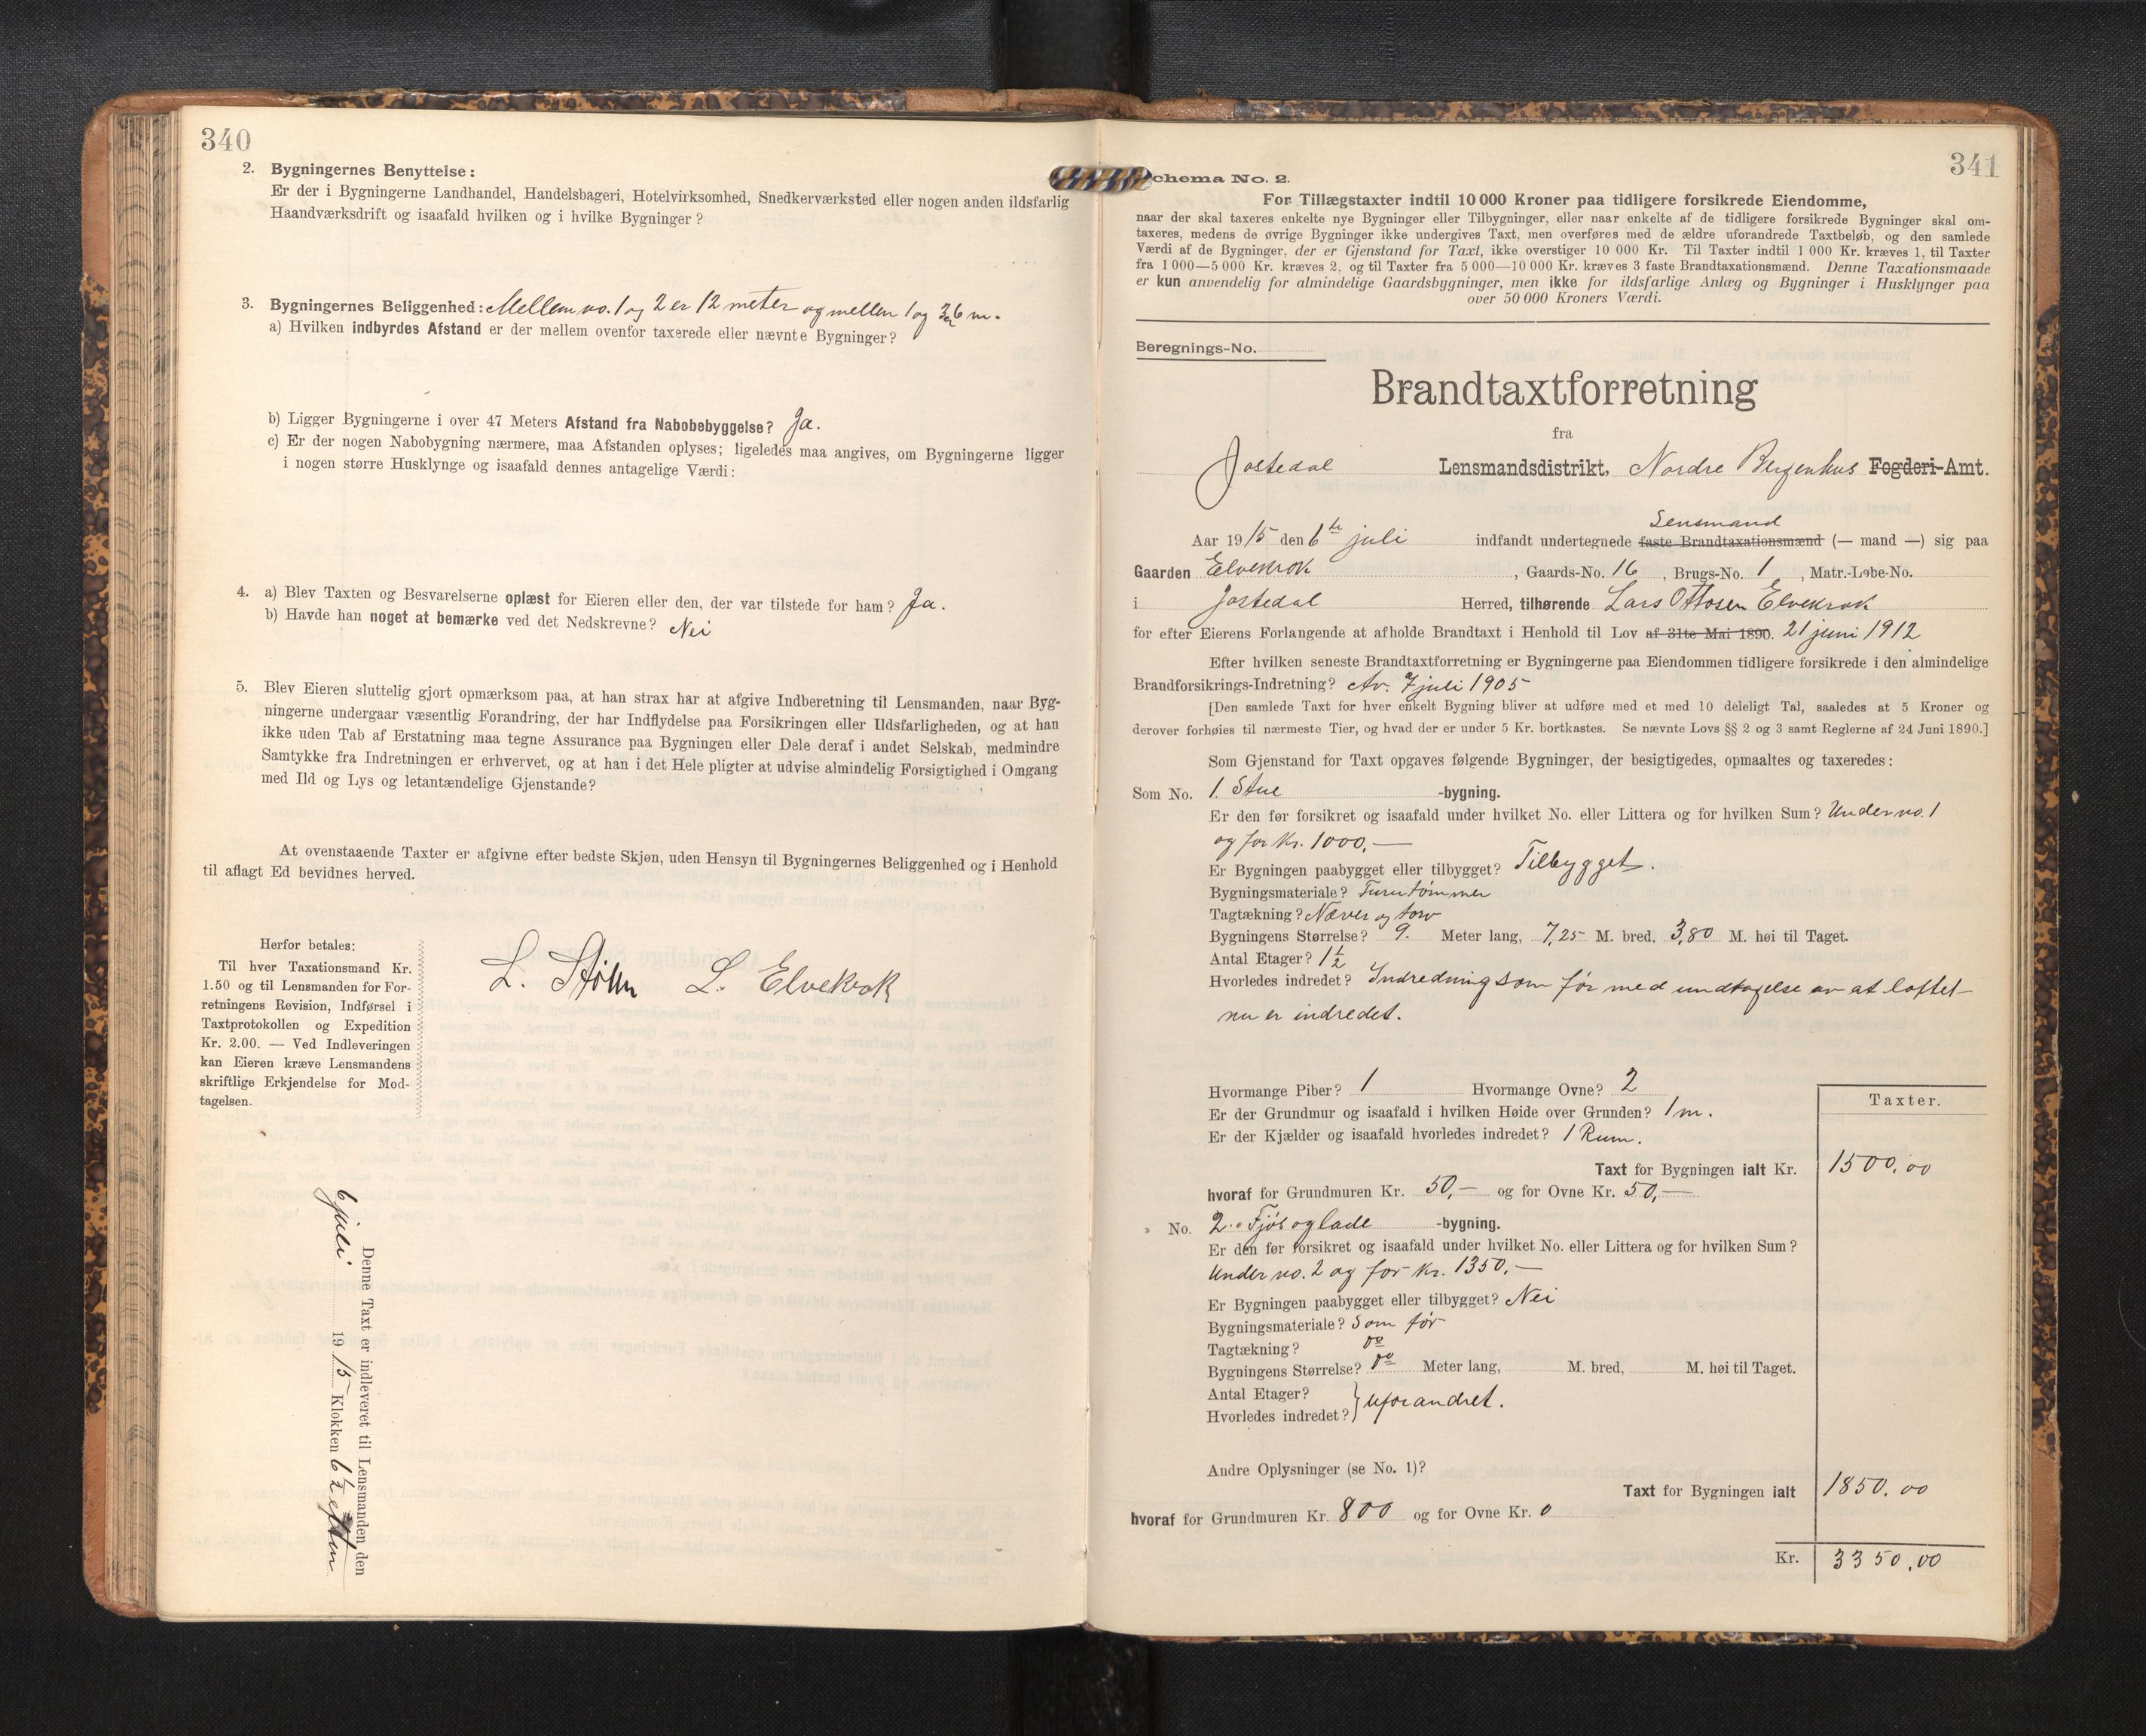 340
2. Bygningernes Benyttelse:
Er der i Bygningerne Landhandel, Handelsbageri, Hotelvirksomhed, Snedkerværksted eller nogen anden ildsfarlig
Haandværksdrift og isaafald hvilken og i hvilke Bygninger?
3. Bygningernes Beliggenhed: Mellem no. 1 og 2 er 12 meter og mellem 1 og 3 er 6 m.
a) Hvilken indbyrdes Afstand er der mellem ovenfor taxerede eller nævnte Bygninger?
b) Ligger Bygningerne i over 47 Meters Afstand fra Nabobebyggelse? Ja.
c) Er der nogen Nabobygning nærmere, maa Afstanden oplyses; ligeledes maa angives, om Bygningerne ligger
i nogen større Husklynge og isaafald dennes antagelige Værdi:
4. a) Blev Taxten og Besvarelserne oplæst for Eieren eller den, der var tilstede for ham? Ja.
b) Havde han noget at bemærke ved det Nedskrevne? Nei
5. Blev Eieren sluttelig gjort opmærksom paa, at han strax har at afgive Indberetning til Lensmanden, naar Byg-
ningerne undergaar væsentlig Forandring, der har Indflydelse paa Forsikringen eller Ildsfarligheden, og at han
ikke uden Tab af Erstatning maa tegne Assurance paa Bygningen eller Dele deraf i andet Selskab, medmindre
Samtykke fra Indretningen er erhvervet, og at han i det Hele pligter at udvise almindelig Forsigtighed i Omgang
med Ild og Lys og letantændelige Gjenstande?
At ovenstaaende Taxter er afgivne efter bedste Skjøn, uden Hensyn til Bygningernes Beliggenhed og i Henhold
til aflagt Ed bevidnes herved.
Herfor betales:
Til hver Taxationsmand Kr.
1.50 og til Lensmanden for For-
retningens Revision, Indførsel i
Taxtprotokollen og Expedition
Kr. 2.00. — Ved Indleveringen
kan Eieren kræve Lensmandens
skriftlige Erkjendelse for Mod-
tagelsen.
L. L. Elvekrok
Denne Taxt er indleveret til Lensmanden den
6 juli 1915 Klokken 6½ eftm
341
Schema No. 2.
For Tillægstaxter indtil 10 000 Kroner paa tidligere forsikrede Eiendomme,
naar der skal taxeres enkelte nye Bygninger eller Tilbygninger, eller naar enkelte af de tidligere forsikrede Bygninger skal om-
taxeres, medens de øvrige Bygninger ikke undergives Taxt, men overføres med de ældre uforandrede Taxtbeløb, og den samlede
Værdi af de Bygninger, der er Gjenstand for Taxt, ikke overstiger 10 000 Kr. Til Taxter indtil 1 000 Kr. kræves 1, til Taxter
fra 1 000—5 000 Kr. kræves 2, og til Taxter fra 5 000—10 000 Kr. kræves 3 faste Brandtaxationsmænd. Denne Taxationsmaade
er kun anvendelig for almindelige Gaardsbygninger, men ikke for ildsfarlige Anlæg og Bygninger i Husklynger paa
over 50 000 Kroners Værdi.
Beregnings-No.
Brandtaxtforretning
fra
Jostedal Lensmandsdistrikt, Nordre Bergenhus Fogderi-Amt.
Lensmand
Aar 1915 den 6te juli indfandt undertegnede faste Brandtaxationsmænd (— mand —) sig paa
Gaarden Elvekrok, Gaards-No. 16, Brugs-No. 1, Matr.-Løbe-No.
i Jostedal Herred, tilhørende Lars Ottosen Elvekrok
for efter Eierens Forlangende at afholde Brandtaxt i Henhold til Lov af 31te Mai 1890. 21 juni 1912
Efter hvilken seneste Brandtaxtforretning er Bygningerne paa Eiendommen tidligere forsikrede i den almindelige
Brandforsikrings-Indretning? Av. 7 juli 1905
[Den samlede Taxt for hver enkelt Bygning bliver at udføre med et med 10 deleligt Tal, saaledes at 5 Kroner og
derover forhøies til nærmeste Tier, og hvad der er under 5 Kr. bortkastes. Se nævnte Lovs §§ 2 og 3 samt Reglerne af 24 Juni 1890.]
Som Gjenstand for Taxt opgaves følgende Bygninger, der besigtigedes, opmaaltes og taxeredes:
Som No. 1. Stue -bygning.
Er den før forsikret og isaafald under hvilket No. eller Littera og for hvilken Sum? Under no. 1
og for kr. 1000,—
Er Bygningen paabygget eller tilbygget? Tilbygget.
Bygningsmateriale? Furutømmer
Tagtækning? Næver og torv
Bygningens Størrelse? 9. Meter lang, 7,25 M. bred, 3,80 M. høi til Taget.
Antal Etager? 1½
Hvorledes indredet? Indredning som før med undtagelse av at loftet
nu er indredet.
Hvormange Piber? 1 Hvormange Ovne? 2
Er der Grundmur og isaafald i hvilken Høide over Grunden? 1 m.
Er der Kjælder og isaafald hvorledes indredet? 1 Rum.
Taxter.
Taxt for Bygningen ialt Kr. 1500,00
hvoraf for Grundmuren Kr. 50,— og for Ovne Kr. 50,—
» No. 2. Fjøs og lade -bygning.
Er den før forsikret og isaafald under hvilket No. eller Littera og for hvilken Sum?
Under no. 2 og for kr. 1350,—
Er Bygningen paabygget eller tilbygget? Nei
Bygningsmateriale? Som før
Tagtækning? do
Bygningens Størrelse? do Meter lang, M. bred, M. høi til Taget.
Antal Etager?
Hvorledes indredet? } uforandret.
Andre Oplysninger (se No. 1)?
Taxt for Bygningen ialt 1850,00
hvoraf for Grundmuren Kr. 800 og for Ovne Kr. 0
Kr. 3350,00